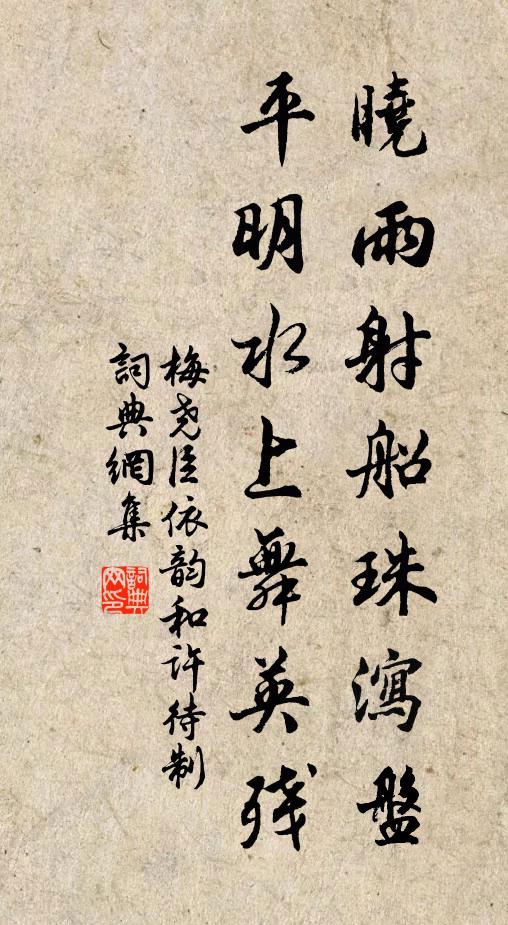 曉雨射船珠瀉盤
平明水上舞英殘
梅尧臣依韵和许待制
詞典網集
詞典網印